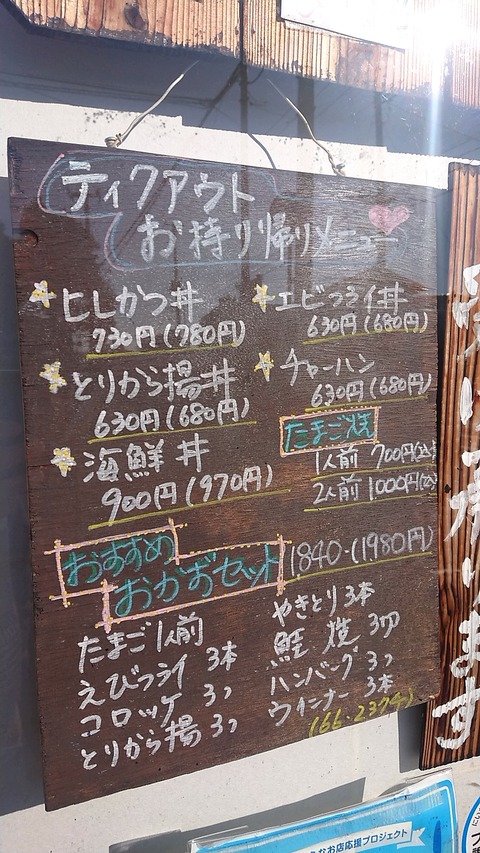 テイクアウト
お持り帰りメニュー
ヒレかつ丼
730円(780円)
とりから揚丼
630円(680円)
海鮮丼
900円(970円)
エビフライ丼
630円(680円)
チャーハン
630円(680円)
たまご焼
1人前 700円(込)
2人前 1000円(込)
おすすめ
おかずセット 1840-(1980円)
たまご1人前
えびフライ 3本
コロッケ 3つ
とりから揚 3つ
やきとり 3本
鮭焼 3切
ハンバーグ 3つ
ウインナー 3本
なお店応援プロジェクト